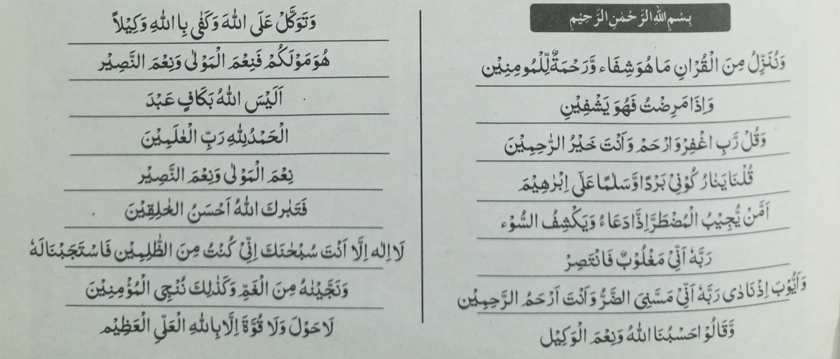 بِسْمِ اللهِ الرَّحْمٰنِ الرَّحِيْمِ
وَنُنَزِّلُ مِنَ الْقُرْاٰنِ مَا هُوَ شِفَاء وَّرَحْمَةٌ لِّلْمُومِنِيْن
وَاِذَا مَرِضْتُ فَهُوَ يَشْفِيْنِ
وَقُلْ رَّبِ اغْفِرْ وَارْحَمْ وَاَنْتَ خَيْرُ الرّٰحِمِيْنَ
قُلْنَا يٰنَارُ كُوْنِيْ بَرْدًا وَّسَلٰمًا عَلٰى اِبْرٰهِيْمَ
اَمَّنْ يُّجِيْبُ الْمُضْطَرَّ اِذَا دَعَاهُ وَيَكْشِفُ السُّوْء
رَبَّهٗ اَنِّيْ مَغْلُوْبٌ فَانْتَصِرْ
وَاَيُّوْبَ اِذْ نَادٰى رَبَّهٗ اَنِّيْ مَسَّنِيَ الضُّرُّ وَاَنْتَ اَرْحَمُ الرّٰحِمِيْنَ
وَّقَالُوْا حَسْبُنَا اللهُ وَنِعْمَ الْوَكِيْل
وَتَوَكَّلْ عَلَى اللهِ وَكَفٰى بِا اللهِ وَكِيْلاً
هُوَ مَوْلٰكُمْ فَنِعْمَ الْمَوْلٰى وَنِعْمَ النَّصِيْر
اَلَيْسَ اللهُ بِكَافٍ عَبْدَ
الْحَمْدُ لِلّٰهِ رَبِّ الْعٰلَمِيْنَ
نِعْمَ الْمَوْلٰى وَنِعْمَ النَّصِيْر
فَتَبٰرَكَ اللهُ اَحْسَنُ الْخٰلِقِيْنَ
لَا اِلٰهَ اِلَّا اَنْتَ سُبْحٰنَكَ اِنِّيْ كُنْتُ مِنَ الظّٰلِمِيْن فَاسْتَجَبْنَا لَهٗ
وَنَجَّيْنٰهُ مِنَ الْغَمِّ وَكَذٰلِكَ نُنْجِي الْمُؤْمِنِيْنَ
لَا حَوْلَ وَلَا قُوَّةَ اِلَّا بِاللهِ الْعَلِّي الْعَظِيْم